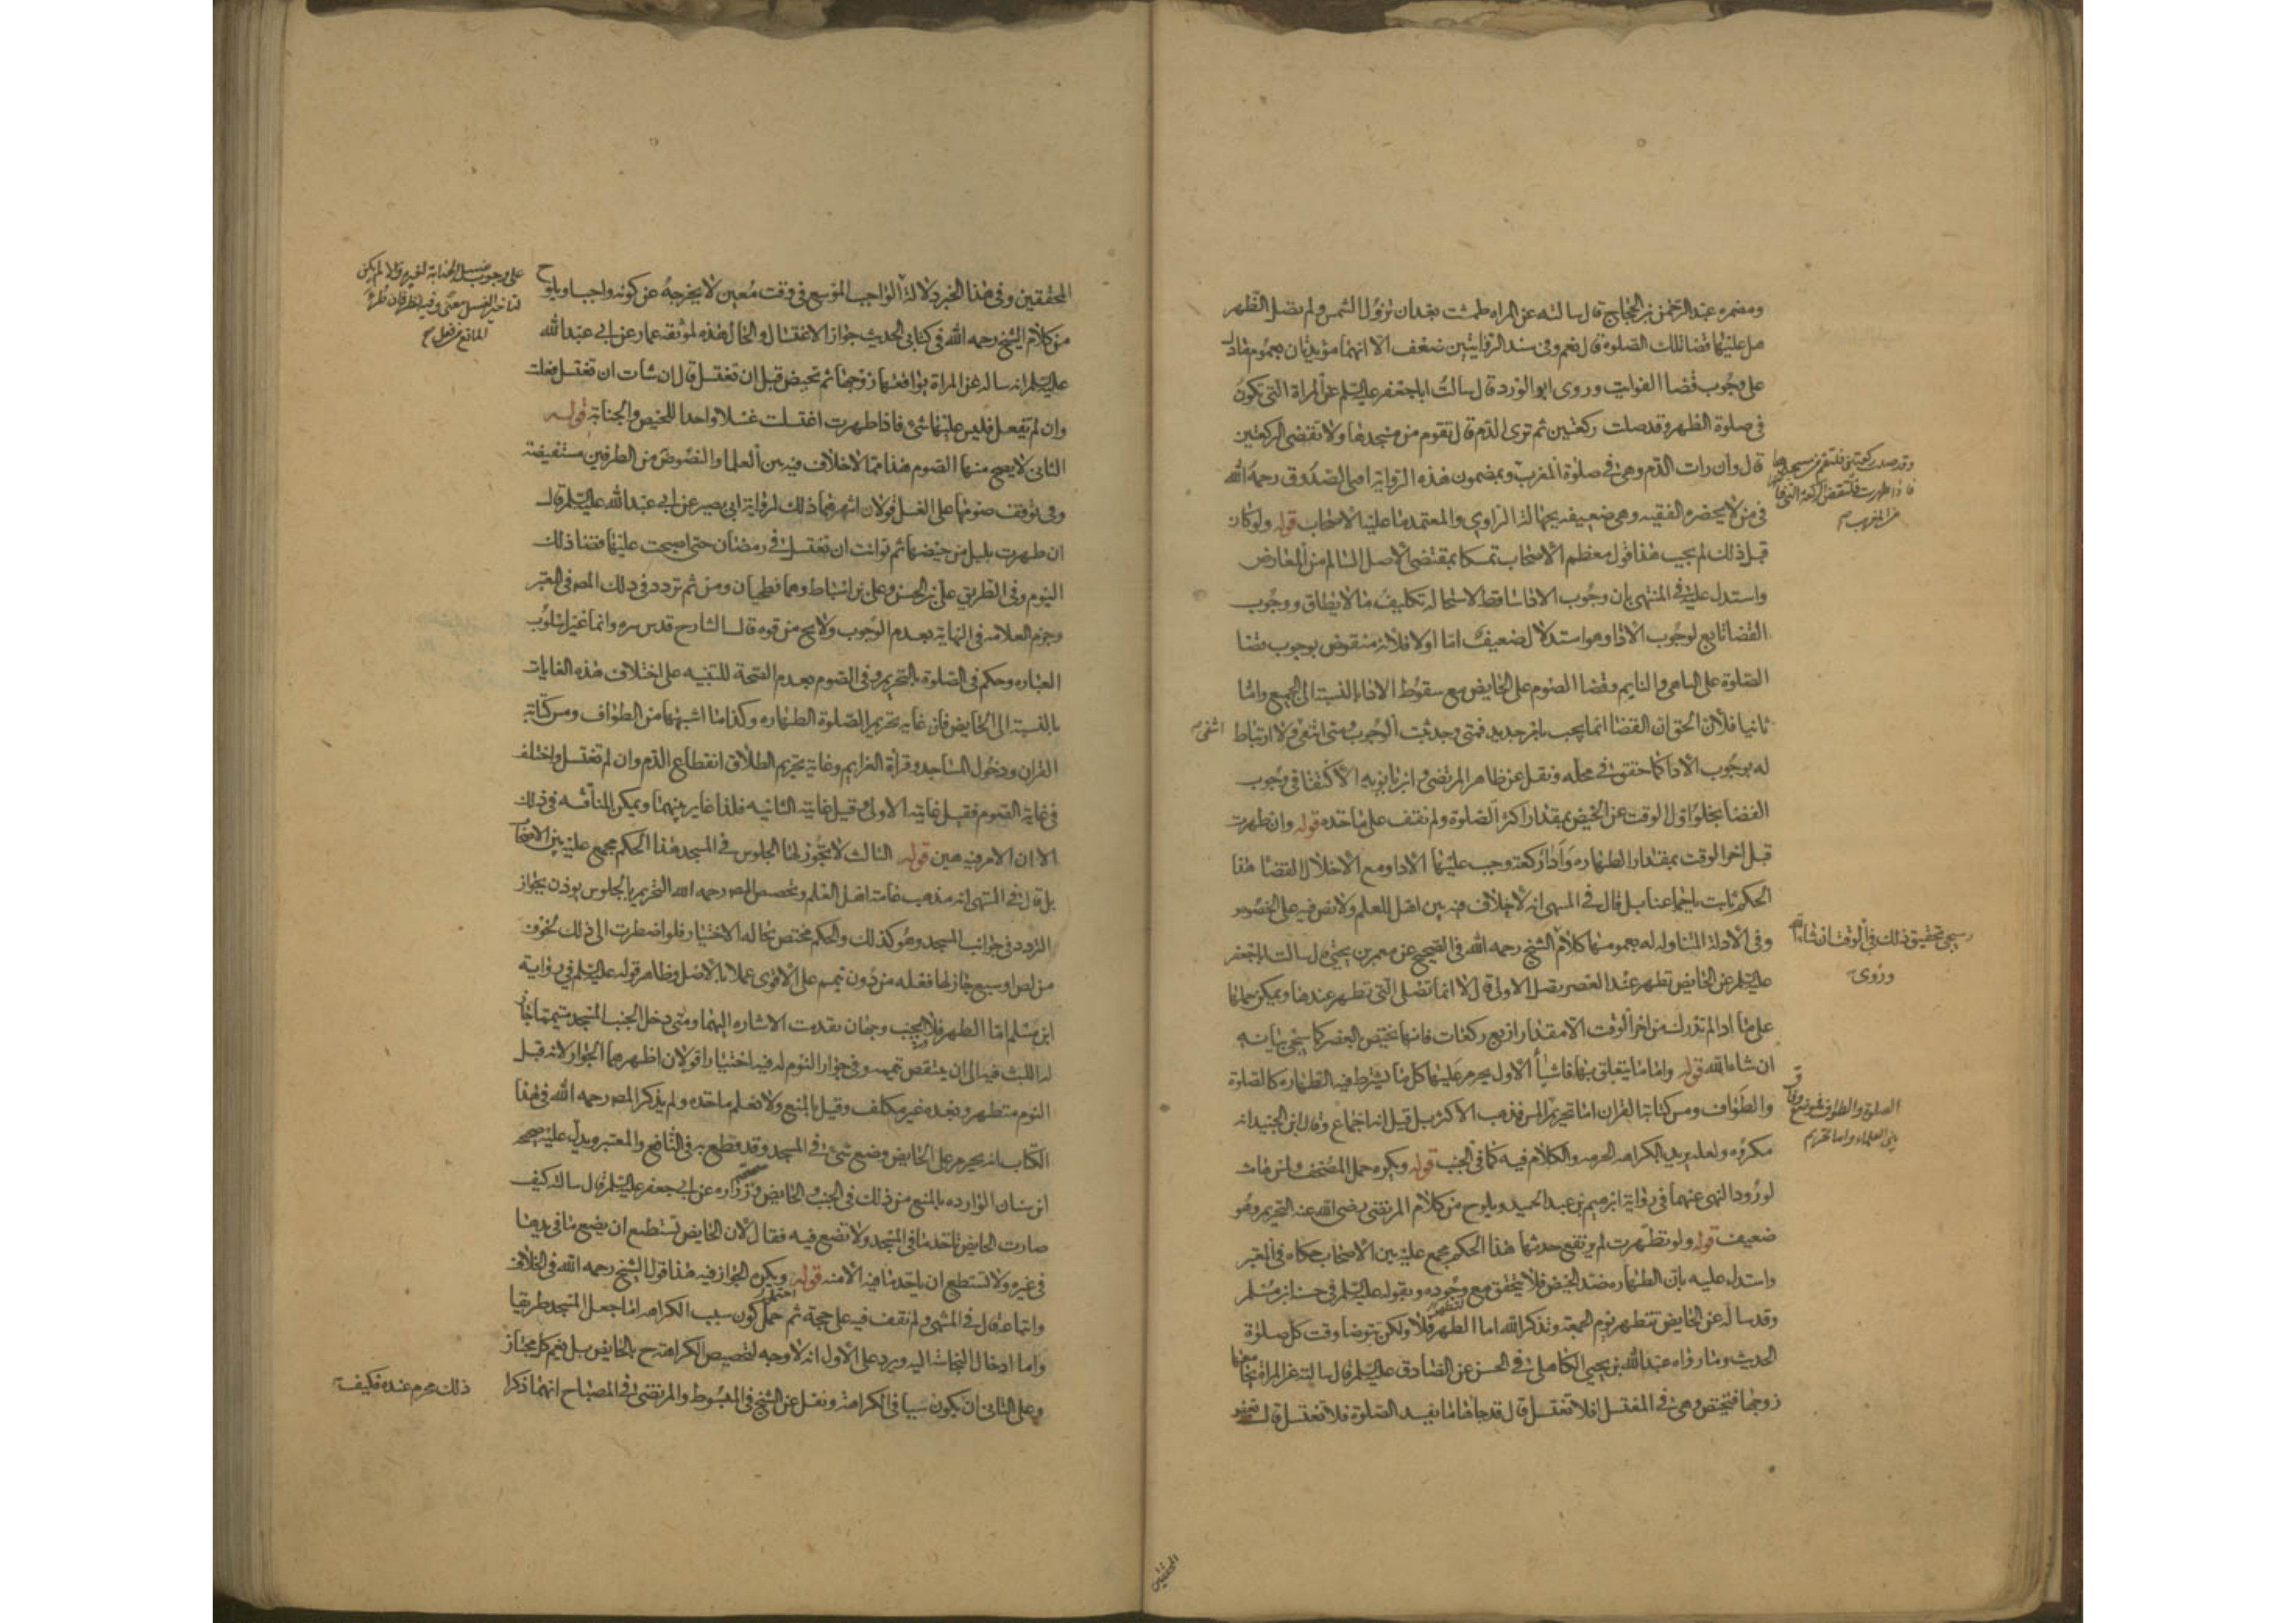 ومضمره عبد الرحمن بن الحجاج قال سالته عن المراه طمثت بعد ان تزول الشمس ولم تصل الظهر
هل عليها قضا تلك الصلوة قال نعم وفى سند الروايتين ضعف الا انهما مؤيدتان بعموم ما دل
على وجوب قضا الفوايت وروى ابو الورد قال سالت ابا جعفر عليه السلم عن المراة التى تكون
فى صلوة الظهر وقد صلت ركعتين ثم ترى الدم قال تقوم من مسجدها ولا تقضى الركعتين
قال وان رات الدم وهى فى صلوة المغرب وبمضمون هذه الرواية افتى الصدوق رحمه الله
وقد صلت ركعتين فلتقم من مسجدها
فاذا طهرت فلتقض الركعة التى فاتتها
من المغرب صح
فى من لا يحضره الفقيه وهى ضعيفه بجهالة الراوي والمعتمد ما عليه الاصحاب قوله ولو كان
قبل ذلك لم يجب هذا قول معظم الاصحاب تمسكا بمقتضى الاصل السالم من المعارض
واستدل عليه فى المنتهى بان وجوب الادا ساقط لاستحالة تكليف ما لا يطاق ووجوب
القضا تابع لوجوب الادا وهو استدلال ضعيف اما اولا فلانه منقوض بوجوب قضا
الصلوة على الساهى والنايم وقضا الصوم على الحايض مع سقوط الادا بالنسبة الى الجميع واما
ثانيا فلان الحق ان القضا انما يجب بامر جديد فمتى وجد ثبت الوجوب ومتى انتفى ولا ارتباط
انتفى صح
له بوجوب الادا كما حقق فى محله ونقل عن ظاهر المرتضى وابن بابويه الاكتفا فى وجوب
القضا بخلو اول الوقت عن الحيض بمقدار اكثر الصلوة ولم نقف على ماخذه قوله وان طهرت
قبل اخر الوقت بمقدار الطهاره واداء ركعة وجب عليها الادا ومع الاخلال القضا هذا
الحكم ثابت باجماعنا بل قال فى المنتهى انه لا خلاف فيه بين اهل العلم ولا نص فيه على الخصوص
وفى الادلة المتناوله له بعمومها كلام الشيخ رحمه الله فى الصحيح عن معمر بن يحيى قال سالت ابا جعفر
سيجى تحقيق ذلك فى الوقت ان شاء الله
وروى
عليه السلم عن الحايض تطهر عند العصر تصلى الاولى قال لا انما تصلى التى تطهر عندها ويمكن حملها
على ما اذا لم تدرك من اخر الوقت الا مقدار اربع ركعات فانها تختص العصر كما سيجى بيانه
ان شاء الله قوله واما ما يتعلق بها فاشيأ الاول يحرم عليها كل ما يشترط فيه الطهاره كالصلوة
والطواف ومس كتابة القران اما تحريم المس فذهب الاكثر بل قيل انه اجماع وقال ابن الجنيد انه
الصلوة والطواف فموضع وفاق
بين العلماء واما تحريم
مكروه ولعله يريد بالكراهه الحرمه والكلام فيه كما فى الجنب قوله ويكره حمل المصحف ولمس هامشه
لورود النهى عنهما فى رواية ابراهيم بن عبد الحميد ويلوح من كلام المرتضى رضى الله عنه التحريم وهو
ضعيف قوله ولو تطهرت لم يرتفع حدثها هذا الحكم مجمع عليه بين الاصحاب حكاه فى المعتبر
واستدل عليه بان الطهاره ضد الحيض فلا يتحقق مع وجوده وبقوله عليه السلم فى حسنة ابن مسلم
وقد ساله عن الحايض تتطهر يوم الجمعه وتذكر الله اما الطهر فلا ولكن تتوضا وقت كل صلوة
الحديث وما رواه عبد الله بن يحيى الكاهلى فى الحسن عن الصادق عليه السلم قال سالته عن المراة يجامعها
زوجها فتحيض وهى فى المغتسل افلا تغتسل قال قد جاءها ما يفسد الصلوة فلا تغتسل قال
المحققين
المحققين وفى هذا الخبر دلالة ان الواجب الموسع فى وقت معين لا يخرجه عن كونه واجبا ويلوح
على وجوب غسل الجنابة لغيره والا لم يكن
لتاخير الغسل معنى وفيه نظر فان طرؤ
المانع صح
من كلام الشيخ رحمه الله فى كتابى الحديث جواز الاغتسال والحال هذه لموثقه عمار عن ابى عبد الله
عليه السلم انه ساله عن المراة يواقعها زوجها ثم تحيض قبل ان تغتسل قال ان شات ان تغتسل فعلت
وان لم تفعل فليس عليها شئ فاذا طهرت اغتسلت غسلا واحدا للحيض والجنابة قوله
الثانى لا يصح منها الصوم هذا مما لا خلاف فيه بين العلما والنصوص من الطرفين مستفيضة
وفى توقف صومها على الغسل قولان اشهرهما ذلك لرواية ابى بصير عن ابى عبد الله عليه السلم قال
ان طهرت بليل من حيضها ثم توانت ان تغتسل فى رمضان حتى اصبحت عليها قضا ذلك
اليوم وفى الطريق على بن الحسن وعلى بن اسباط وهما فطحيان ومن ثم تردد فى ذلك المص فى المعتبر
وجزم العلامه فى النهاية بعدم الوجوب ولا يخ من قوه قال الشارح قدس سره وانما غير اسلوب
العباره وحكم فى الصلوة بالتحريم وفى الصوم بعدم الصحة للتنبيه على اختلاف هذه الغايات
بالنسبة الى الحايض فان غايه تحريم الصلوة الطهاره وكذا ما اشبهها من الطواف ومس كتابة
القران ودخول المساجد وقرأة العزايم وغاية تحريم الطلاق انقطاع الدم وان لم تغتسل واختلف
فى غاية الصوم فقيل غايته الاولى وقيل غايته الثانيه فلذا غاير بينهما ويمكن المناقشه فى ذلك
الا ان الامر فيه هين قوله الثالث لا يجوز لها الجلوس فى المسجد هذا الحكم مجمع عليه بين الاصحاب
بل قال فى المنتهى انه مذهب عامة اهل العلم وتخصيص المص رحمه الله التحريم بالجلوس يوذن بجواز
التردد فى جوانب المسجد وهو كذلك والحكم مختص بحاله الاختيار فلو اضطرت الى ذلك لخوف
من لص او سبع جاز لها فعله من دون تيمم على الاقوى عملا بالاصل وظاهر قوله عليه السلم فى رواية
ابن مسلم اما الطهر فلا ويجب وجهان تقدمت الاشاره اليهما ومتى دخل الجنب المسجد متيمما جاز
له اللبث فيه الى ان ينتقض تيممه وفى جواز النوم له فيه اختيارا قولان اظهرهما الجواز لانه قبل
النوم متطهر وبعده غير مكلف وقيل بالمنع ولا نعلم ماخذه ولم يذكر المص رحمه الله فى هذا
الكتاب انه يحرم على الحايض وضع شئ فى المسجد وقد قطع به فى النافع والمعتبر ويدل عليه صحيحة
ابن سنان الوارده بالمنع من ذلك فى الجنب والحايض وصحيحة زراره عن ابى جعفر عليه السلم قال سالته كيف
صارت الحايض تاخذ ما فى المسجد ولا تضع فيه فقال لان الحايض تستطيع ان تضع ما فى يدها
فى غيره ولا تستطيع ان تاخذ ما فيه الا منه قوله ويكره الجواز فيه هذا قول الشيخ رحمه الله فى الخلاف
واتباعه قال فى المنتهى ولم نقف فيه على حجة ثم احتمل كون سبب الكراهه اما جعل المسجد طريقا
واما ادخال النجاسة اليه ويرد على الاول انه لا وجه لتخصيص الكراهة ح بالحايض بل يعم كل مجتاز
وعلى الثانى ان يكون سببا فى الكراهة ونقل عن الشيخ فى المبسوط والمرتضى فى المصباح انهما ذكرا
ذلك محرم عنده فكيف